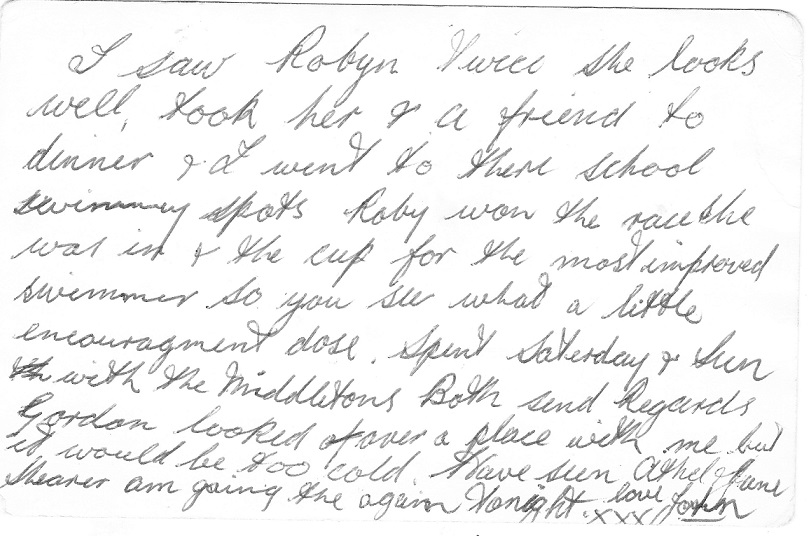 I saw Robyn Twice she looks
well, took her & a friend to
dinner & I went to there school
swimming spots Roby won the race she
was in & the cup for the most improved
swimmer so you see what a little
encouragment dose. Spent Saterday & Sun
with the Middletons Both send Regards
Gordon looked over a place with me but
it would be too cold. Have seen Athel & Jane
Shearer am going the again tonight. love John
xxx